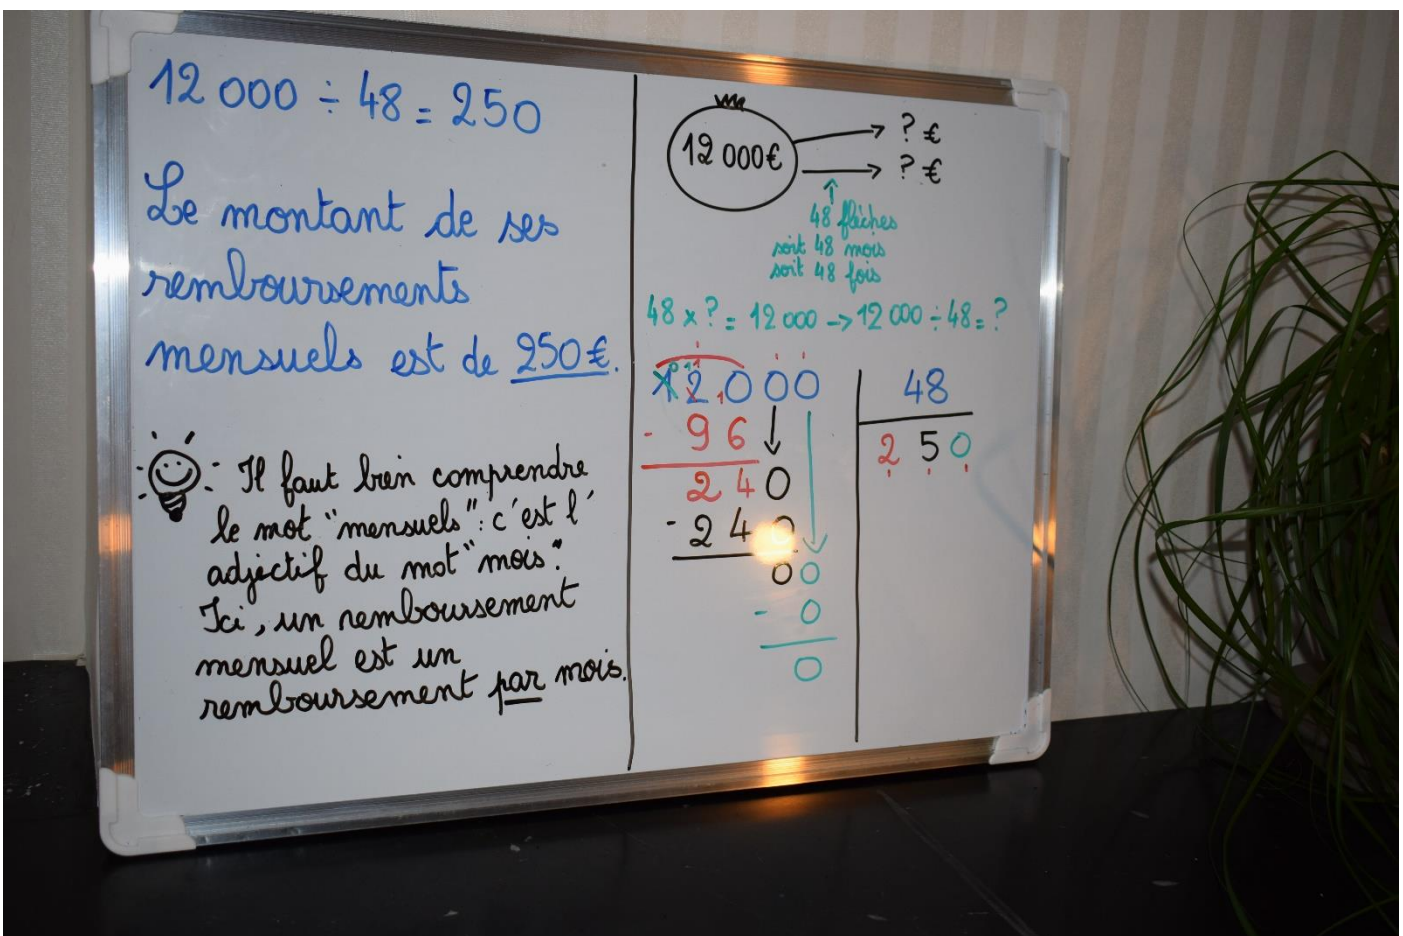 12 000 ÷ 48 = 250
Le montant de ses
remboursements
mensuels est de 250€.
: Il faut bien comprendre
le mot "mensuels": c'est l'
adjectif du mot "mois".
Ici, un remboursement
mensuel est un
remboursement par mois.
12 000€
? €
? €
48 flèches
soit 48 mois
soit 48 fois
48 x ? = 12 000 -> 12 000 ÷ 48 = ?
12000 48
- 96 250
240
- 240
00
- 0
0